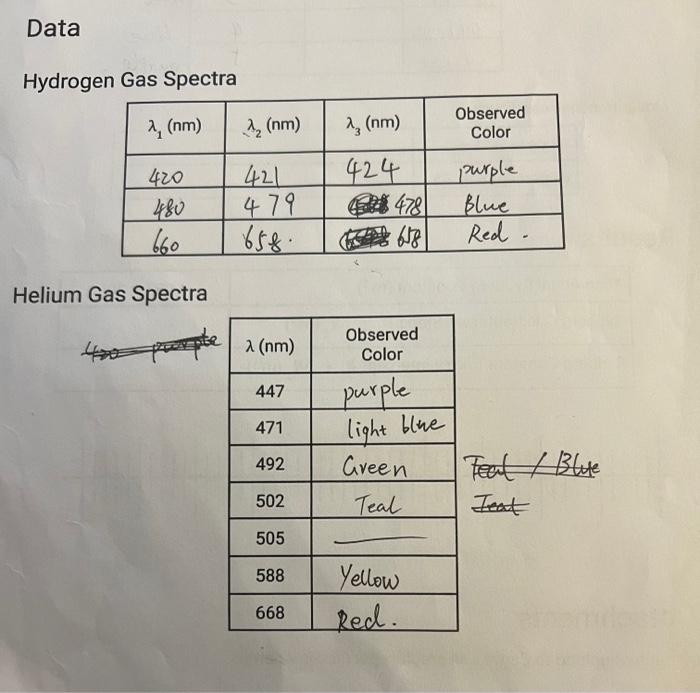 Data
Hydrogen Gas Spectra
λ₁ (nm) λ₂ (nm) λ₃ (nm) Observed Color
420 421 424 purple
480 479 478 Blue
660 658. 658 Red.
Helium Gas Spectra
420 purple
λ (nm) Observed Color
447 purple
471 light blue
492 Green Teal / Blue
502 Teal Teal
505
588 Yellow
668 Red.